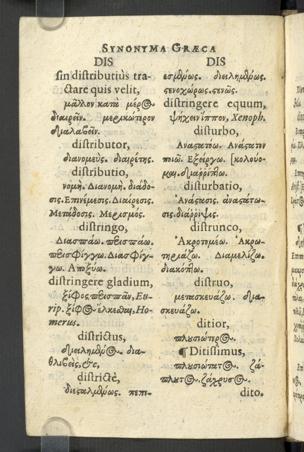 SYNONYMA GRÆCA
DIS
sin distributius tra-
ctare quis velit,
μᾶλλον κατὰ μέρος
διαιρεῖν. μερικώτερον
διαλαβεῖν.
distributor,
διανομεὺς. διαιρέτης.
distributio,
νομὴ. Διανομὴ. διάδο-
σις. Ἐπινέμεσις. Διαίρεσις.
Μετάδοσις. Μερισμός.
distringo,
Διασπάω. περισπάω.
περισφίγγω. Διασφίγ-
γω. Ἀποξύω.
distringere gladium,
ξίφος περισπᾶν, Eu-
rip. ξίφος ἑλκεῖν, Ho-
merus.
districtus,
διειλημμένος. δια-
θλιβεὶς, &c,
districtè,
διεσταλμένως. πεπι-
DIS
εσμένως. διειλημμένως.
στενοχώρως. στενῶς.
distringere equum,
ψήχειν ἵππον, Xenoph.
disturbo,
Ἀναστατόω. Ἀνάστατον
ποιῶ. Ἐξείργω. [κολούο-
μαι. διαρρίπτω.
disturbatio,
Ἀνάστασις. ἀναστάτω-
σις. διάρριψις.
distrunco,
Ἀκροτομέω. Ἀκρω-
τηριάζω. Διαμελίζω.
διακόπτω.
distruo,
μετασκευάζω. δια-
σκευάζω.
ditior,
πλουσιώτερος.
¶ Ditissimus,
πλουσιώτατος. ζά-
πλουτος. ζάχρυσος.
dito.